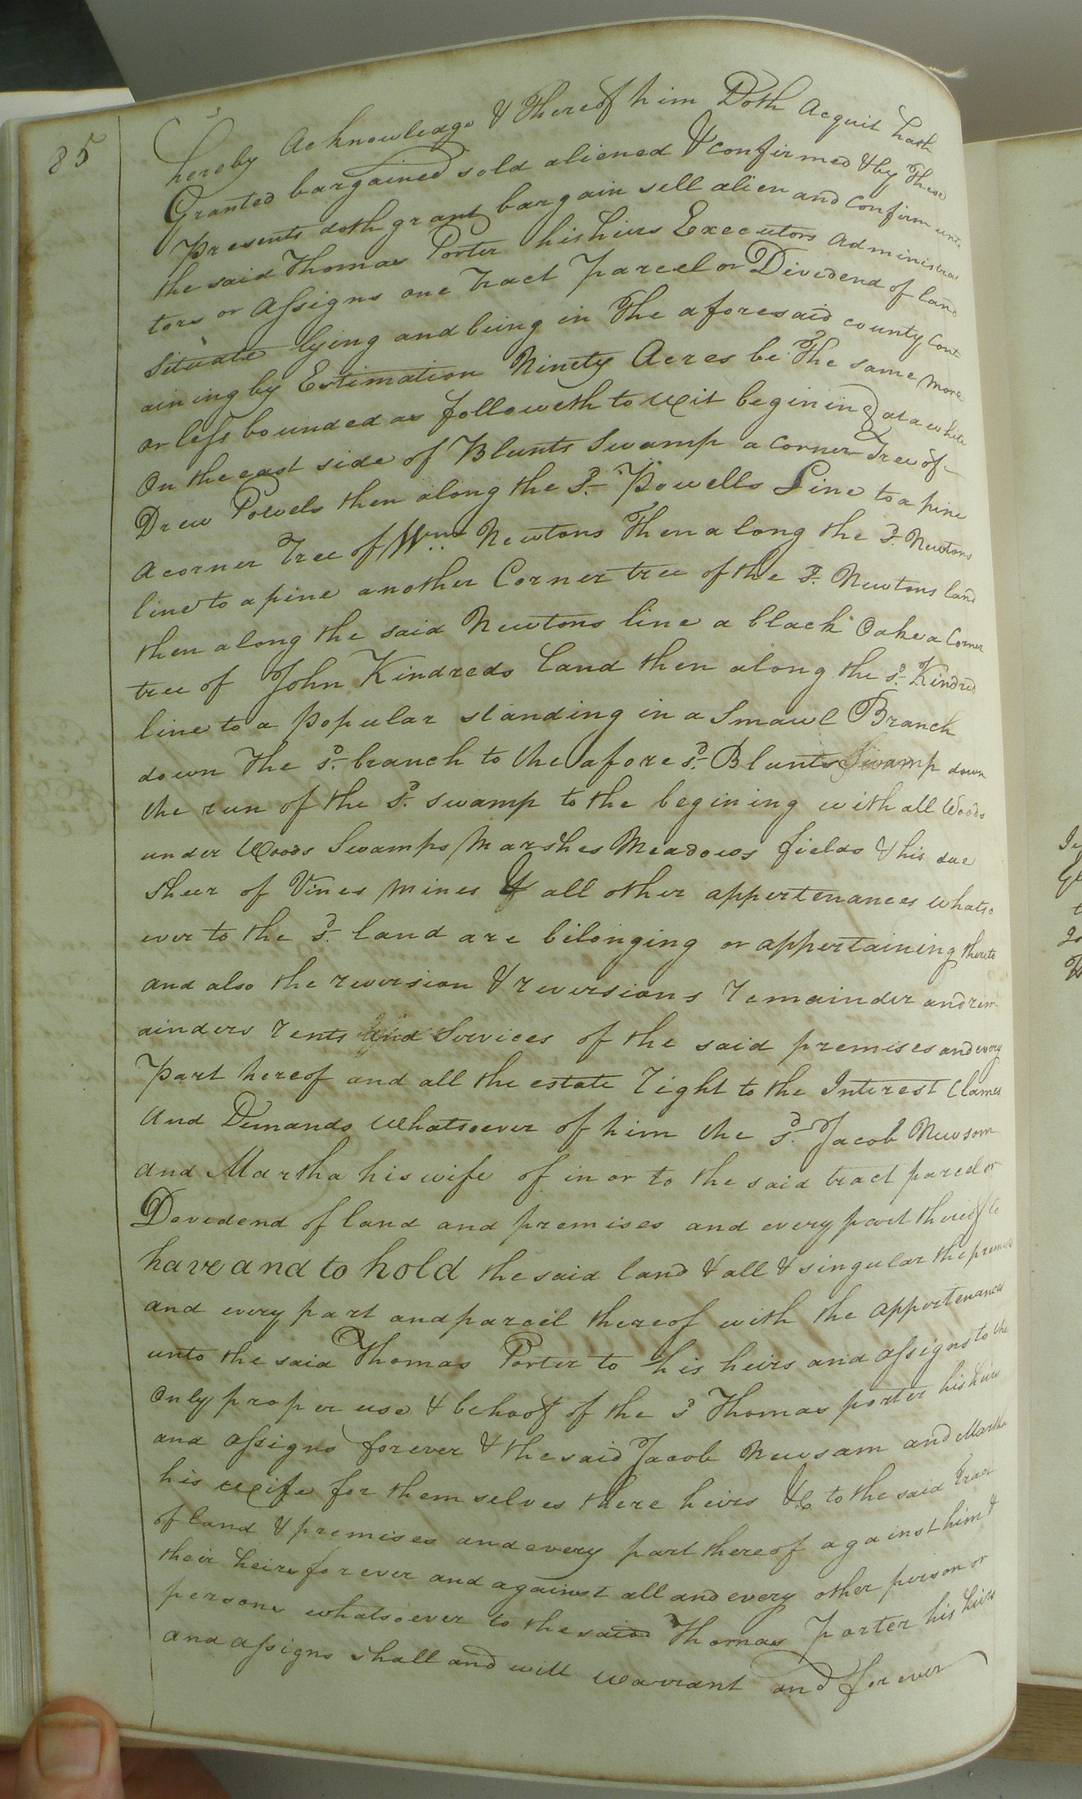 85
hereby Acknowledge & thereof him Doth Acquit hath
Granted bargained sold aliened & confirmed & by These
presents doth grant bargain sell alien and confirm unto
the said Thomas Porter his heirs Executors Administra
tors or Assigns one Tract parcel or Dividend of land
Situate lying and being in The aforesaid county Cont
aining by Estimation Ninety Acres be The same more
or less bounded as followeth to wit begining at a white
On the east side of Blunts Swamp a corner Tree of
Drew Powels then along the sd. Powells Line to a pine
A corner Tree of Wm. Newtons Then along the sd. Newtons
line to a pine another Corner tree of the sd. Newtons land
then along the said Newtons line a black Oake a Corner
tree of John Kindreds Land then along the sd. Kindred
line to a popular standing in a Smawl Branch
down The sd. branch to the afore sd. Blunts Swamp down
the run of the sd. swamp to the begining with all Woods
under Woods Swamps Marshes Meadows fields & his due
sheer of Vines Mines & all other appertenances whatso
ever to the sd. land are bilonging or appertaining thereto
and also the reversion & reversions remainder and rem
ainders rents and Services of the said premises and every
Part hereof and all the estate right to the Interest Clames
And Demands whatsoever of him the sd. Jacob Newsom
and Martha his wife of in or to the said tract parcel or
Devedend of land and premises and every part thereof to
have and to hold the said land & all & singular the premises
and every part and parcil thereof with the appertenances
unto the said Thomas Porter to his heirs and assigns to the
Only proper use & behoof of the sd Thomas porter his heirs
and assigns forever & the said Jacob Newsam and Martha
his wife for them selves there heirs &c to the said Tract
of land & premises and every part thereof against him &
their heirs for ever and against all and every other person or
persons whatsoever to the said Thomas Porter his heirs
and assigns shall and will warrant and forever